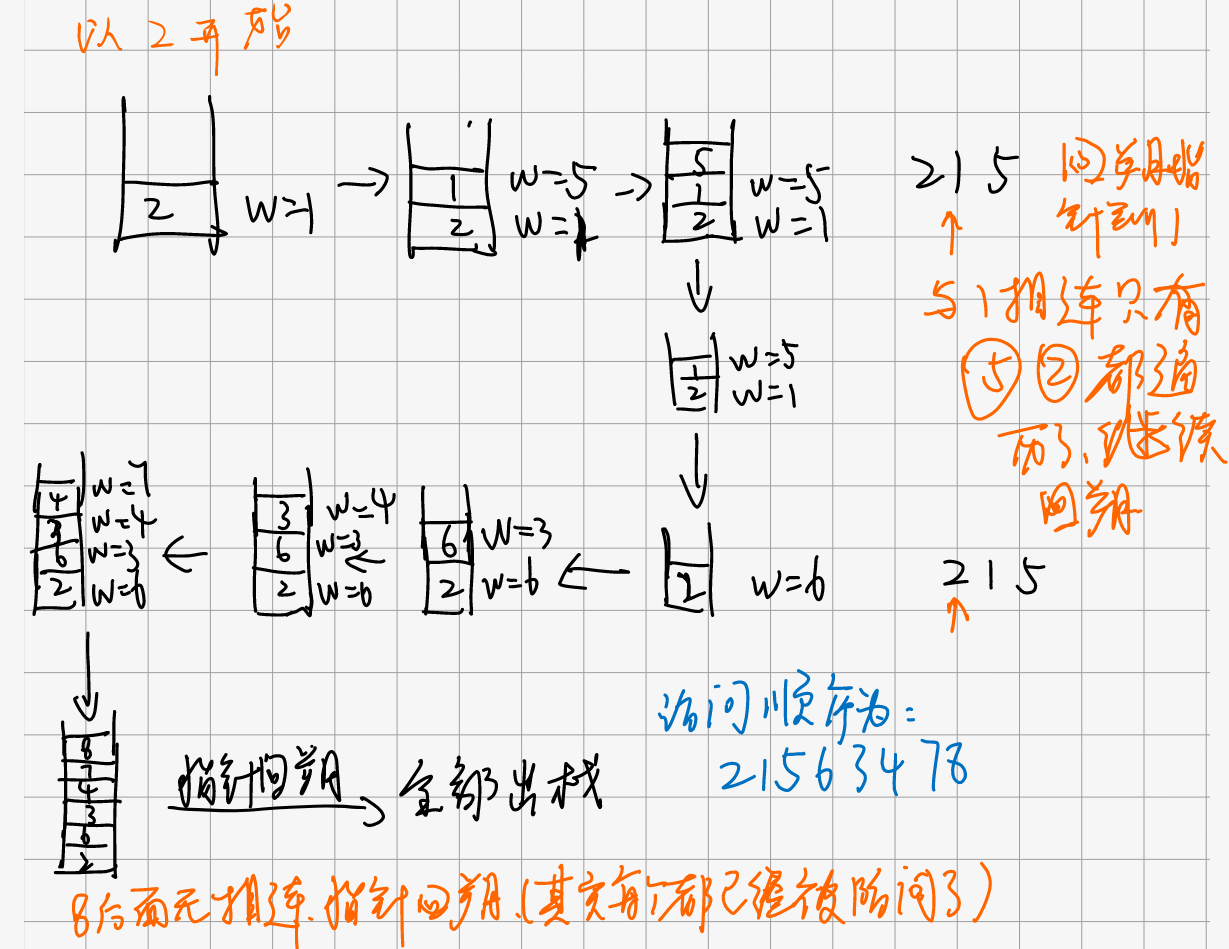 以2开始
2 w=1 → 1 2 w=5 w=1 → 5 1 2 w=5 w=1
215 回溯指
针到1
↑
5 1相连只有
↓
⑤②都遍
1 2 w=5 w=1
历了、继续
回溯
↓
2 w=6
215
↑
← 6 2 w=3 w=6
← 3 6 2 w=4 w=3 w=6
← 4 3 6 2 w=7 w=4 w=3 w=6
↓
8 7 4 3 6 2
指针回溯 → 全部出栈
访问顺序为:
21563478
8后面无相连、指针回溯、(其实每个都已经被访问了)